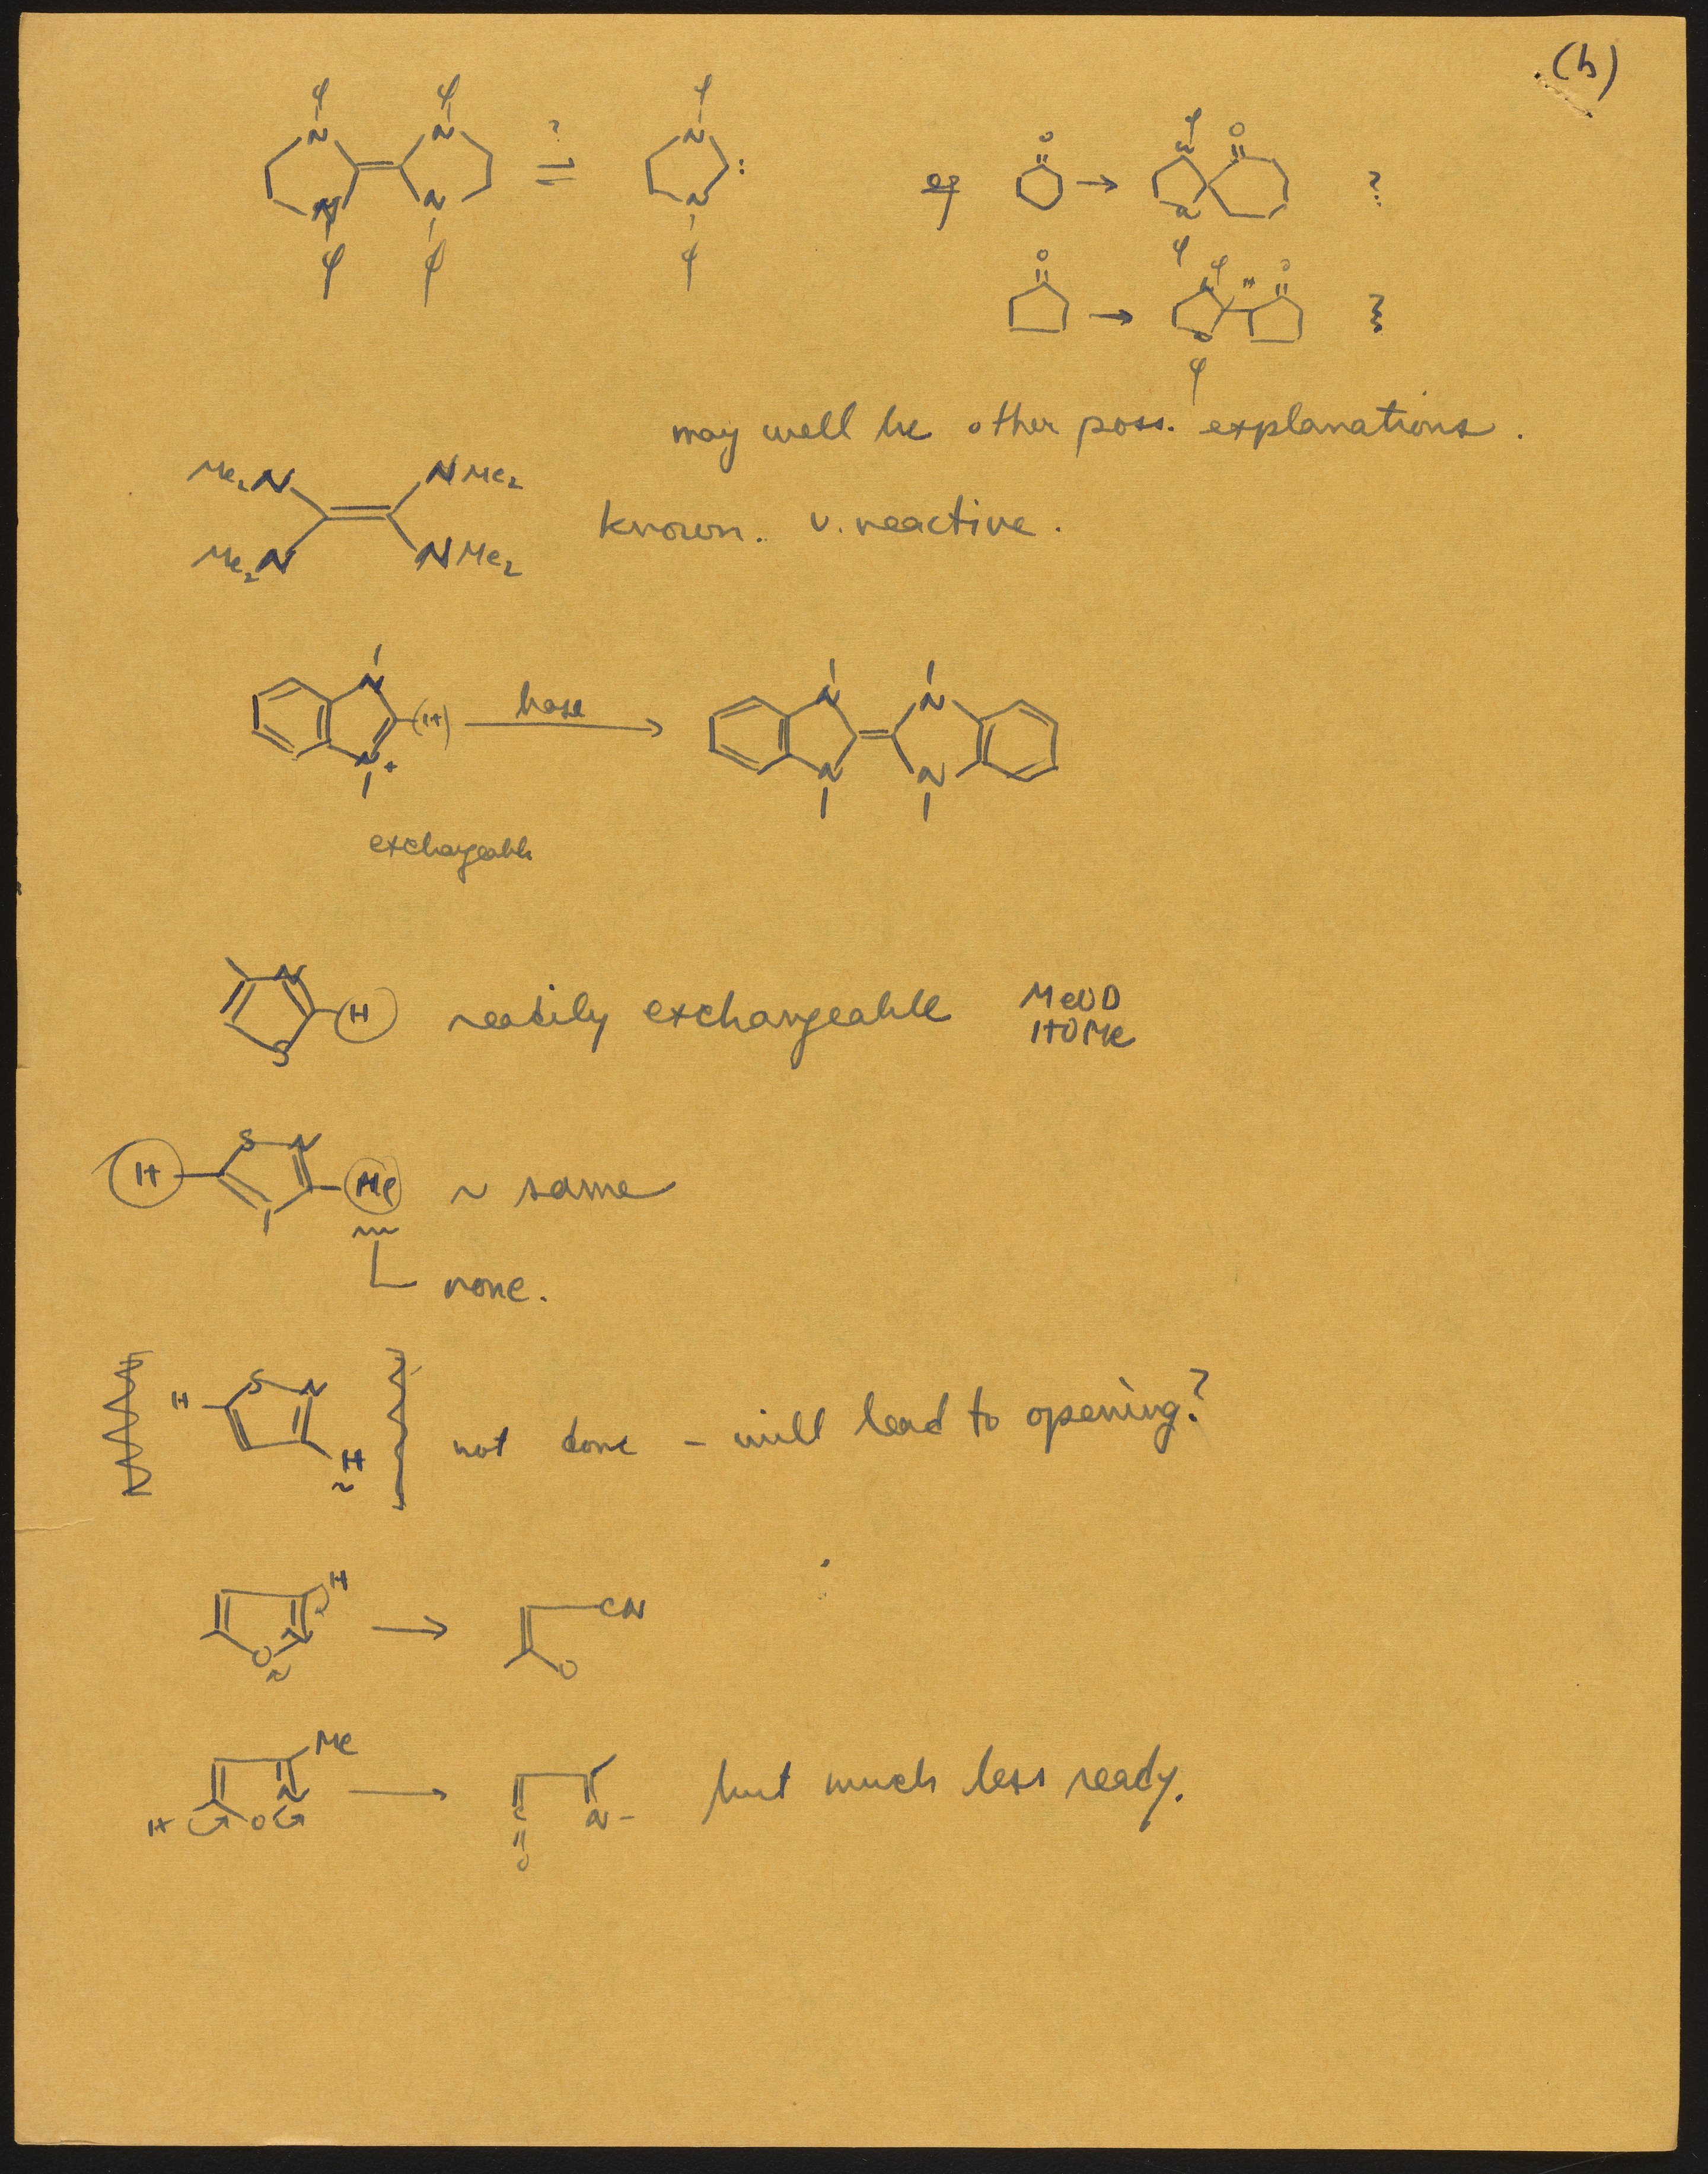 (b)
φ φ φ
N N N :
?
⇌
N N N
φ φ φ
eg O → φ N O N φ ?
O → φ N O N φ ?
may well be other poss. explanations.
Me₂N NMe₂
Me₂N NMe₂
known. v. reactive.
N (H) N+
base
N N N N
exchangeable
N H S
readily exchangeable
MeOD
HOMe
H S N Me
~ same
none.
H S N H
not done – will lead to opening?
H N O → CN O
Me H O N → C O N-
but much less ready.